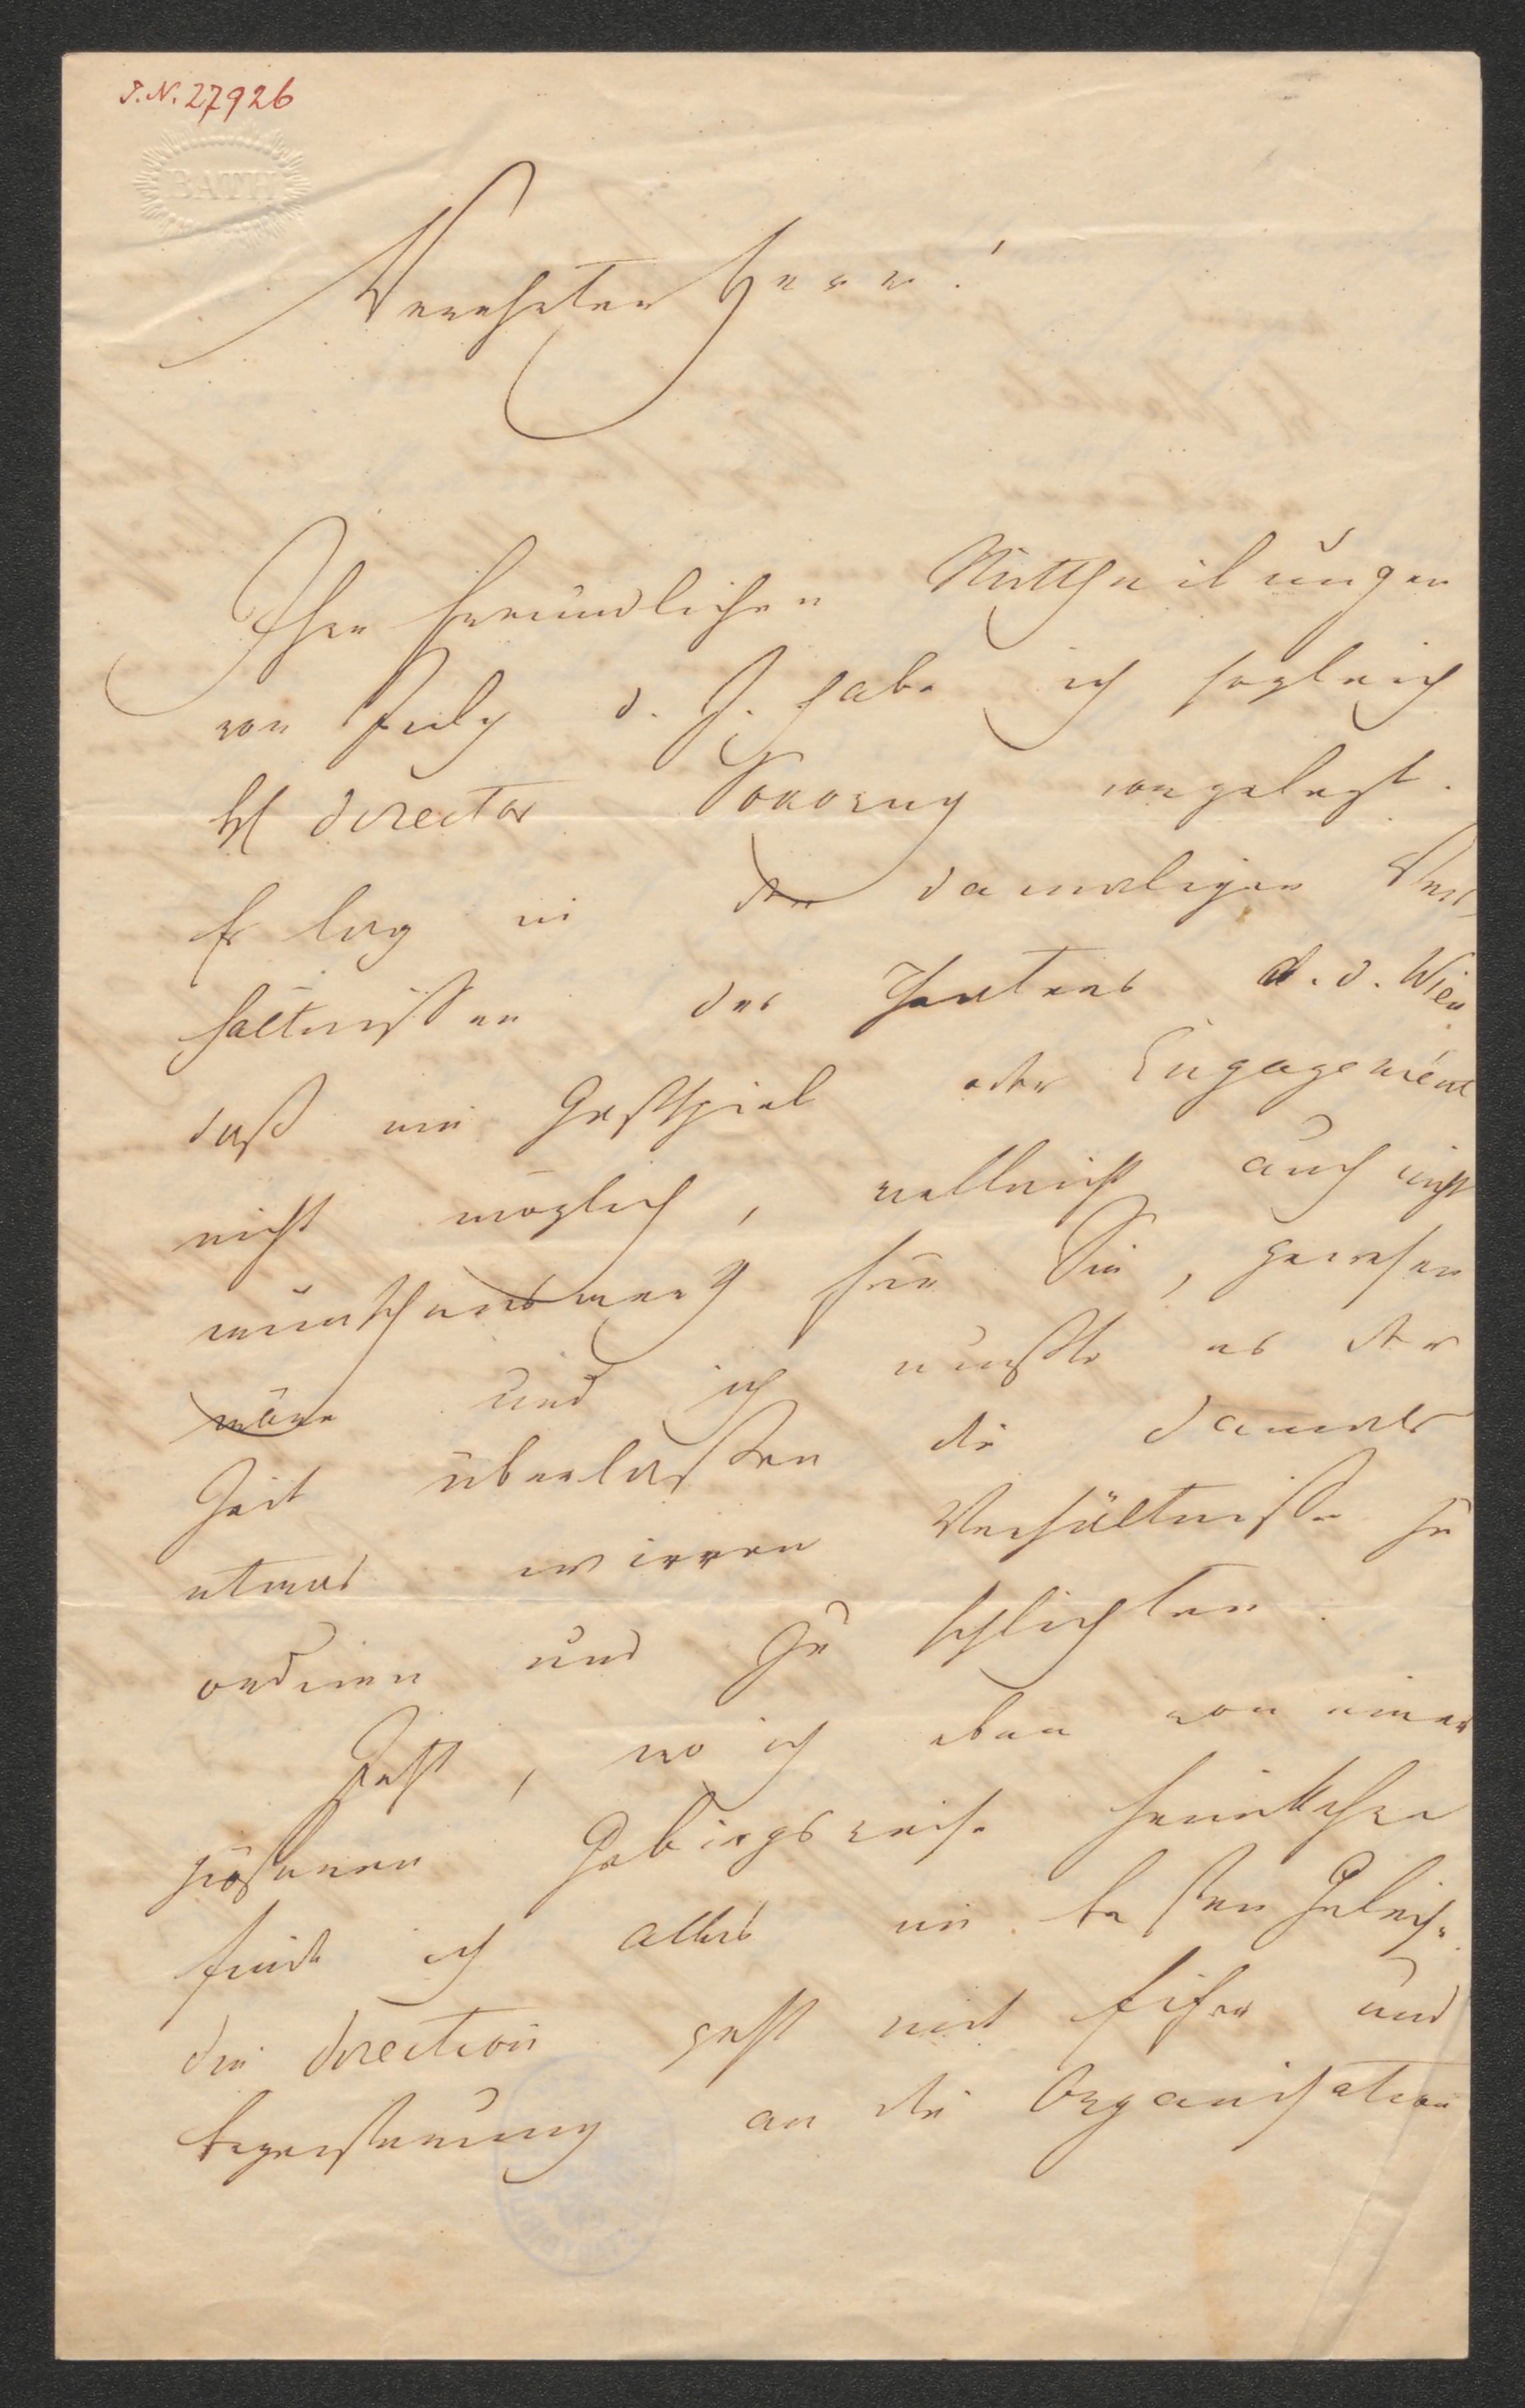 I.N. 27926
BATH
Verehrter Herr!
Ihre freundlichen Mittheilungen
von July d. J. habe ich sogleich
H Director Pokorny vorgelegt.
Es lag in den damaligen Ver-
hältnissen des Theaters a. d. Wien
daß ein Gastspiel oder Engagement
nicht möglich, vielleicht auch nicht
wünschenswerth für Sie, gewesen
wäre und ich mußte es der
Zeit überlassen die damals
etwas wirren Verhältnisse zu
ordnen und zu schlichten.
Jetzt, wo ich eben von einer
größeren Gebirgsreise heimkehre
finde ich alles im besten Geleise.
Die Direction geht mit Eifer und
Begeisterung an die Organisation